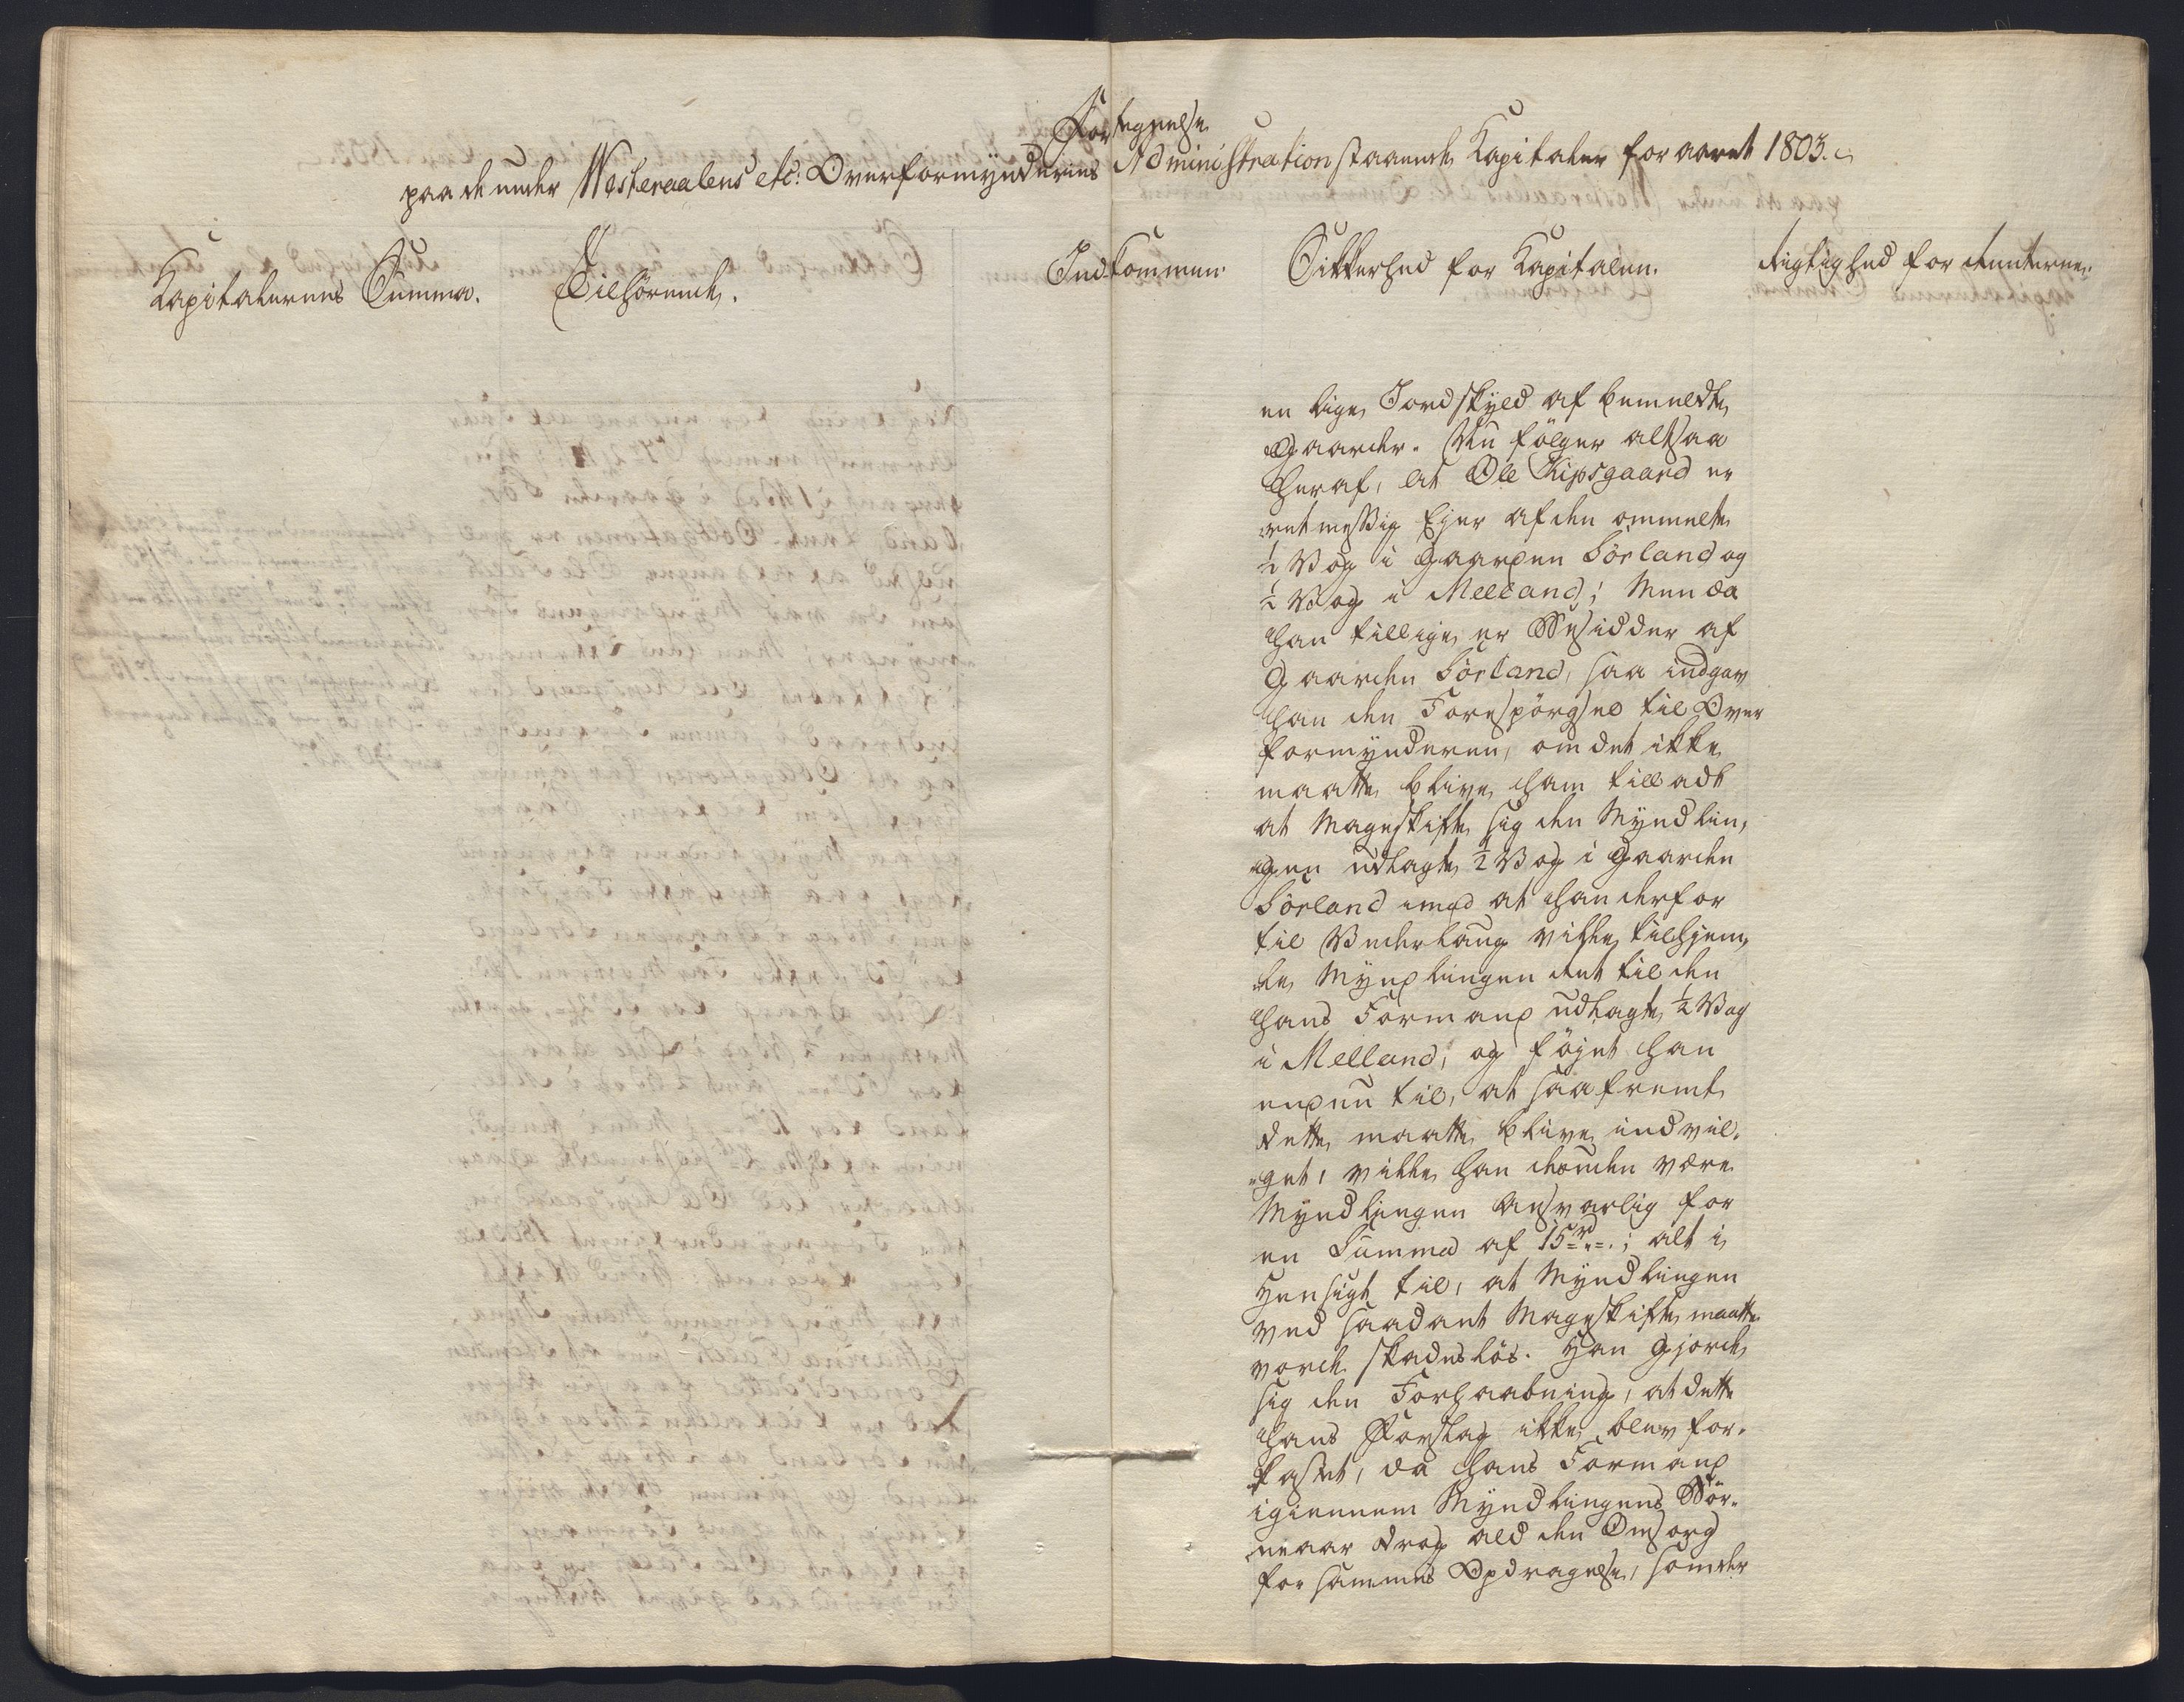 Fortegnelse
paa de under Westeraalens etc: Overformynderies Administration staaende Kapitaler for aaret 1803.
Kapitalernes Summa.
Tilhörende.
Indkommen.
Sikkerhed for Kapitalen.
Rigtighed for Renterne.
en lige Jordskyld af bemeldte
Gaarder. Nu fölger altsaa
heraf, at Ole Kipsgaard er
retmessig Ejer af den ommelte
½ Vog i Gaarden Sörland og
½ Vog i Melland; Men da
han tillige er Besidder af
Gaarden Sörland, saa indgav
han den Forespörgsel til Over
formynderen, om det ikke
maatte blive ham tilladt
at Mageskifte sig den Myndlin,
gen udlagte ½ Vog i Gaarden
Sörland imod at han derfor
til Vederlaug vilde tilhjem,
le Myndlingen det til den
hans Formand udlagte ½ Vog
i Melland; og föjet han
endnu til, at saafremt
dette maatte blive indvil-
get, vilde han desuden være
Myndlingen Ansvarlig for
en Summa af 15 rd; alt i
Hensigt til, at Myndlingen
ved saadant Mageskifte maatte
vorde skadeslös. Han gjorde
sig den Forhaabning, at dette
hans Forslag ikke blev for-
kastet, da hans Formand
igiennem Myndlingens Bör-
neaar drog ald den Omsorg
for sammes Opdragelse, som der